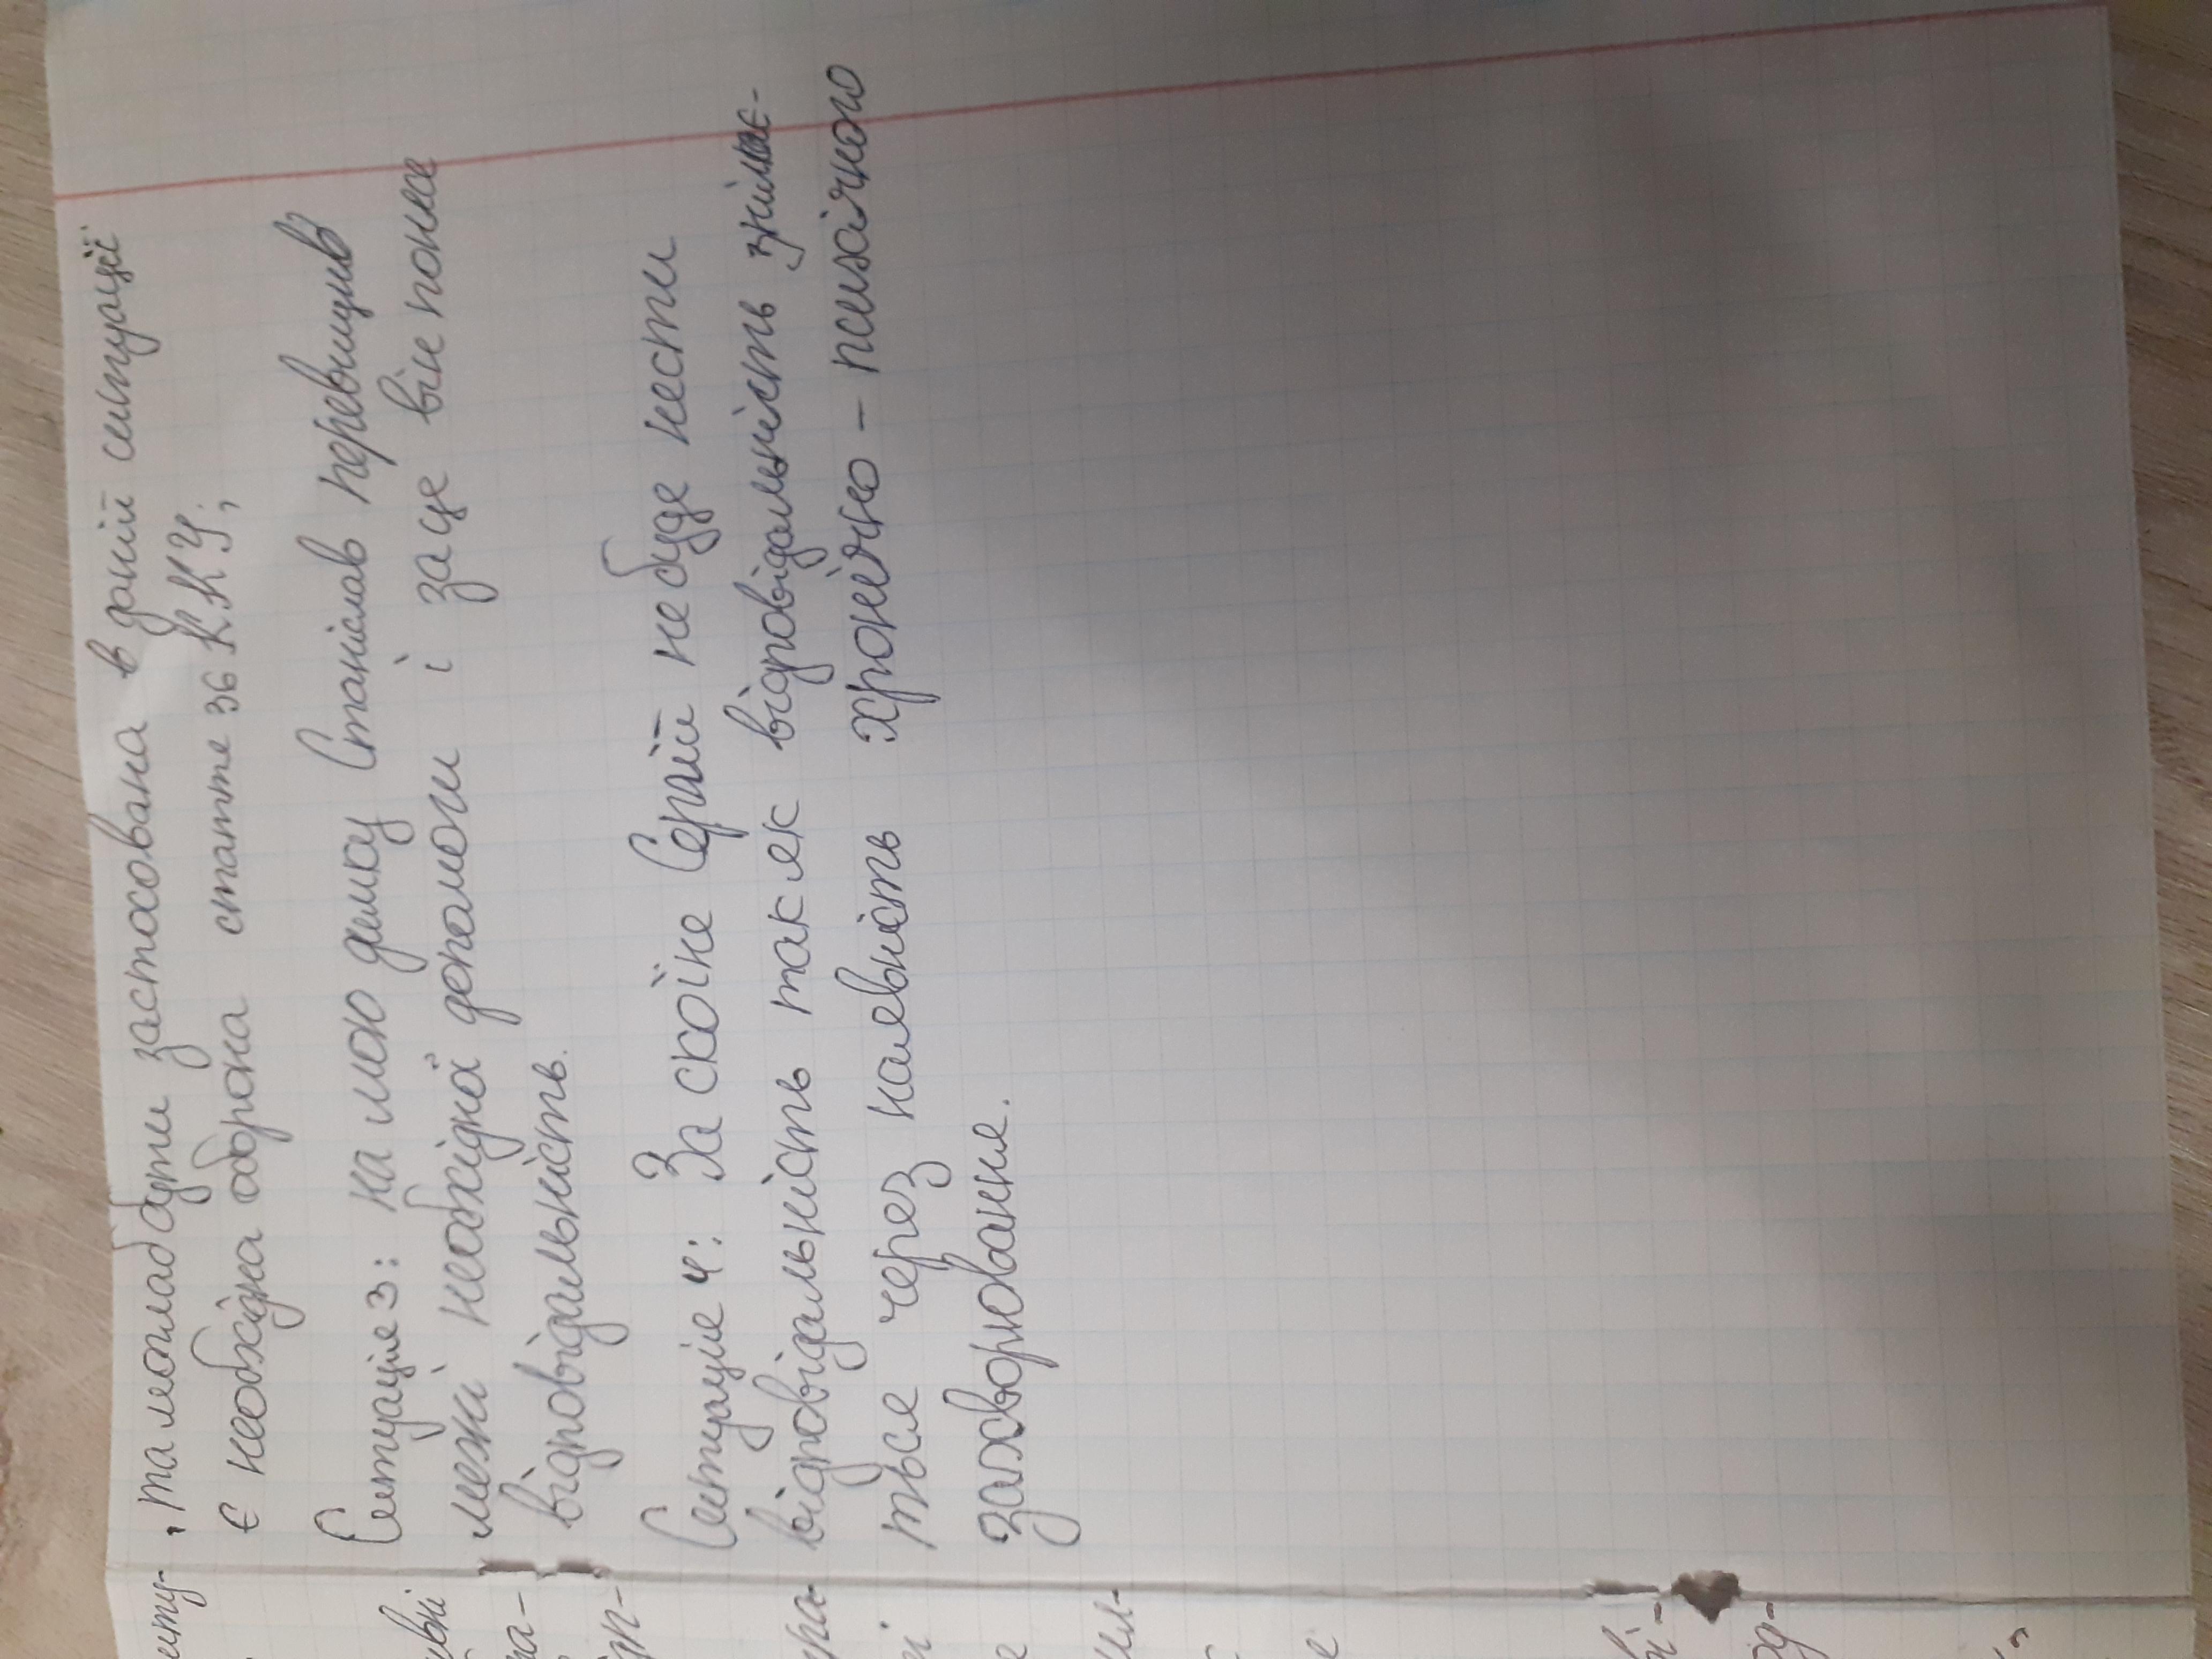 та моглаб бути застосована в даній ситуації
є необхідна оборона стаття 36 ККУ,
Ситуація 3: на мою думку Станіслав перевищив
межі необхідної допомоги і за це він понесе
відповідальність.
Ситуація 4: За скоїне Сергій не буде нести
відповідальність так як відповідальність знімає-
ться через наявність хронічно - психічного
захворювання.